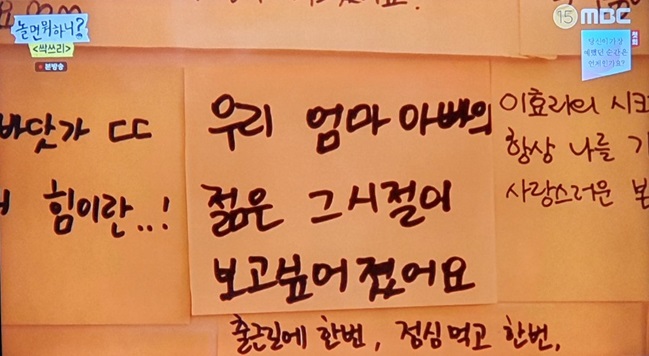 놀면뭐하니?
<싹쓰리>
본방송
15 MBC
당신이 가장
예뻤던 순간은
언제인가요?
첫회
바닷가 ㄷㄷ
힘이란..!
우리 엄마 아빠의
젊은 그 시절이
보고싶어졌어요
이효리의 시크
항상 나를
사랑스러운
출근길에 한번, 점심먹고 한번,